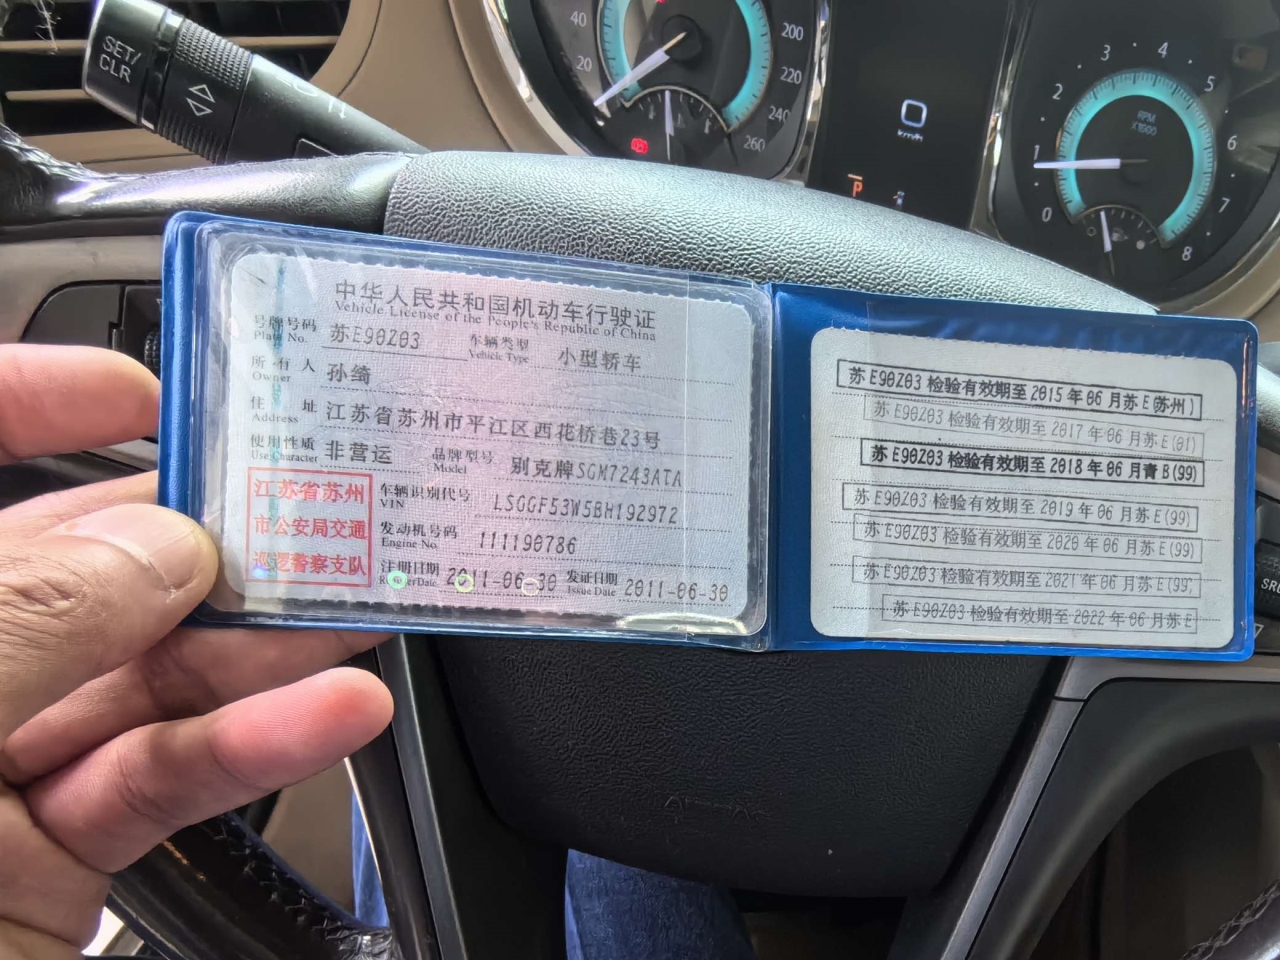 SET/
CLR
40
20
200
220
240
260
P
RPM
X1000
0
1
2
3
4
5
6
7
8
中华人民共和国机动车行驶证
Vehicle License of the People's Republic of China
号牌号码 苏E90Z03 车辆类型 小型轿车
Plate No. Vehicle Type
所有人 孙绮
Owner
住址 江苏省苏州市平江区西花桥巷23号
Address
使用性质 非营运 品牌型号 别克牌SGM7243ATA
Use Character Model
江苏省苏州
市公安局交通
巡逻警察支队
车辆识别代号 LSGGF53W5BH192972
VIN
发动机号码 111190786
Engine No.
注册日期 2011-06-30 发证日期 2011-06-30
Register Date Issue Date
苏E90Z03检验有效期至2015年06月苏E(苏州)
苏E90Z03检验有效期至2017年06月苏E(01)
苏E90Z03检验有效期至2018年06月青B(99)
苏E90Z03检验有效期至2019年06月苏E(99)
苏E90Z03检验有效期至2020年06月苏E(99)
苏E90Z03检验有效期至2021年06月苏E(99)
苏E90Z03检验有效期至2022年06月苏E